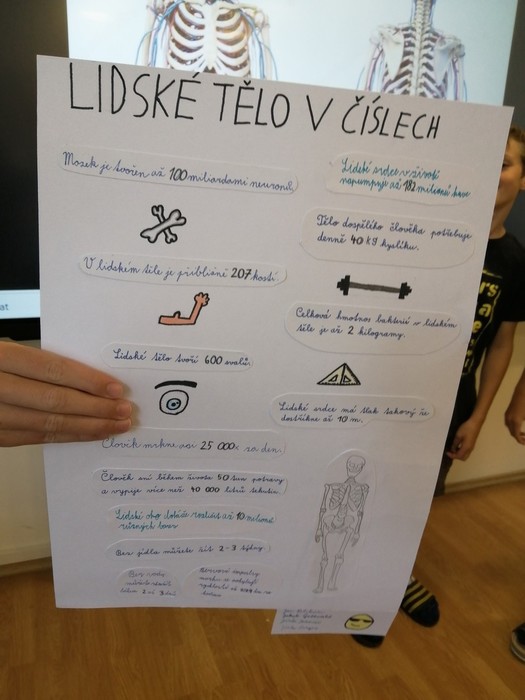 LIDSKÉ TĚLO V ČÍSLECH
Mozek je tvořen až 100 miliardami neuronů.
V lidském těle je přibližně 207 kostí.
Lidské tělo tvoří 600 svalů.
Člověk mrkne asi 25 000x za den.
Člověk sní během života 50 tun potravy
a vypije více než 40 000 litrů tekutin.
Lidské oko dokáže rozlišit až 10 milionů
různých barev
Bez jídla můžete žít 2-3 týdny.
Bez vody
2 až 3 dní
Nervové impulsy
Lidské srdce v životě
napumpuje až 182 milionů
Tělo dospělého člověka potřebuje
denně 40 kg kyslíku.
Celková hmotnost bakterií v lidském
těle je až 2 kilogramy.
Lidské srdce má tlak takový že
dostříkne až 10 m.
at